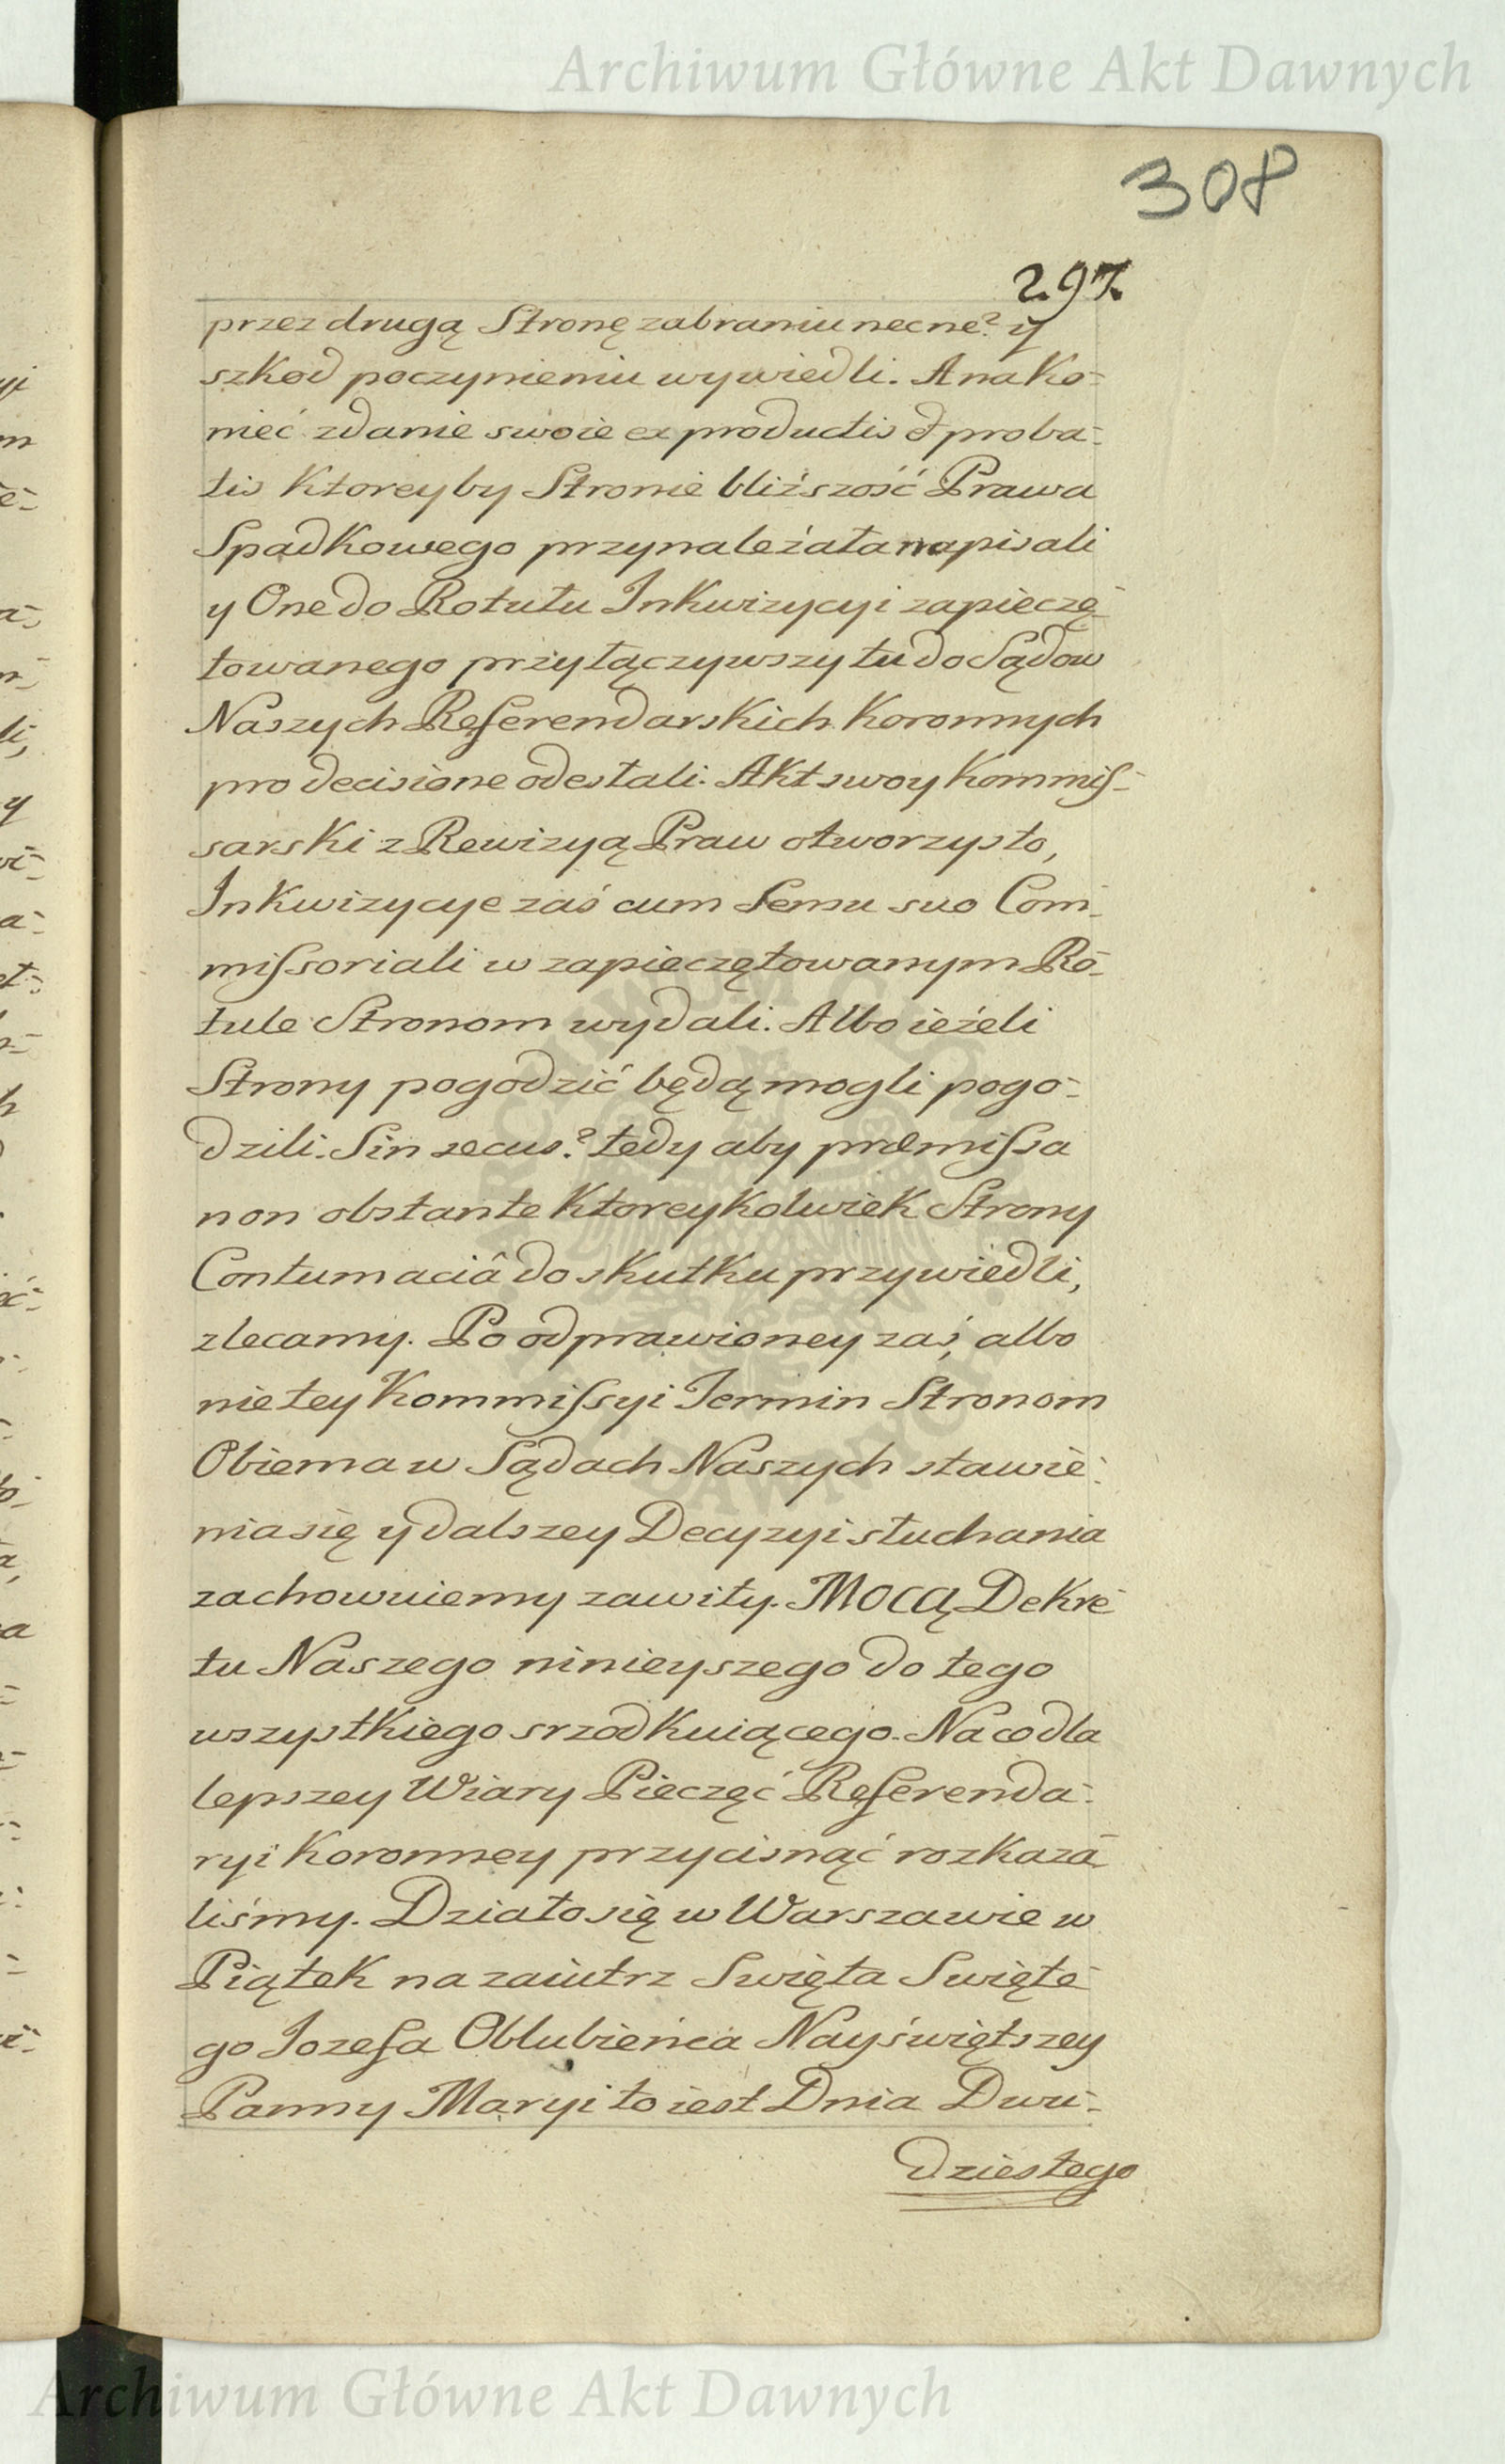 Archiwum Główne Akt Dawnych
308
297.
przez drugą Stronę zabraniu necne? y
szkod poczynieniu wywiedli. A na ko-
niec zdanie swoie ex productis et proba-
tis ktoreyby Stronie bliższość Prawa
Spadkowego przynależała napisali
y One do Rotułu Inkwizycyi zapieczę-
towanego przyłączywszy tu do Sądow
Naszych Referendarskich Koronnych
pro decisione odesłali. Akt swoy Kommis-
sarski z Rewizyą Praw otworzysto,
Inkwizycye zaś cum Semu suo Com-
missoriali w zapieczętowanym Ro-
tule Stronom wydali. Albo ieżeli
Strony pogodzić będą mogli pogo-
dzili. Sin secus? tedy aby præmissa
non obstante ktoreykolwiek Strony
Contumaciâ do skutku przywiedli,
zlecamy. Po odprawioney zaś, albo
nie tey Kommissyi Termin Stronom
Obiema w Sądach Naszych stawie-
nia się y dalszey Decyzyi słuchania
zachowuiemy zawity. MOCĄ Dekre-
tu Naszego ninieyszego do tego
wszystkiego srzodkuiącego. Na co dla
lepszey Wiary Pieczęć Referenda-
ryi Koronney przycisnąć rozkaza-
liśmy. Działo się w Warszawie w
Piątek nazaiutrz Swięta Swięte-
go Jozefa Oblubieńca Nayświętszey
Panny Maryi to iest Dnia Dwu-
dziestego
Archiwum Główne Akt Dawnych